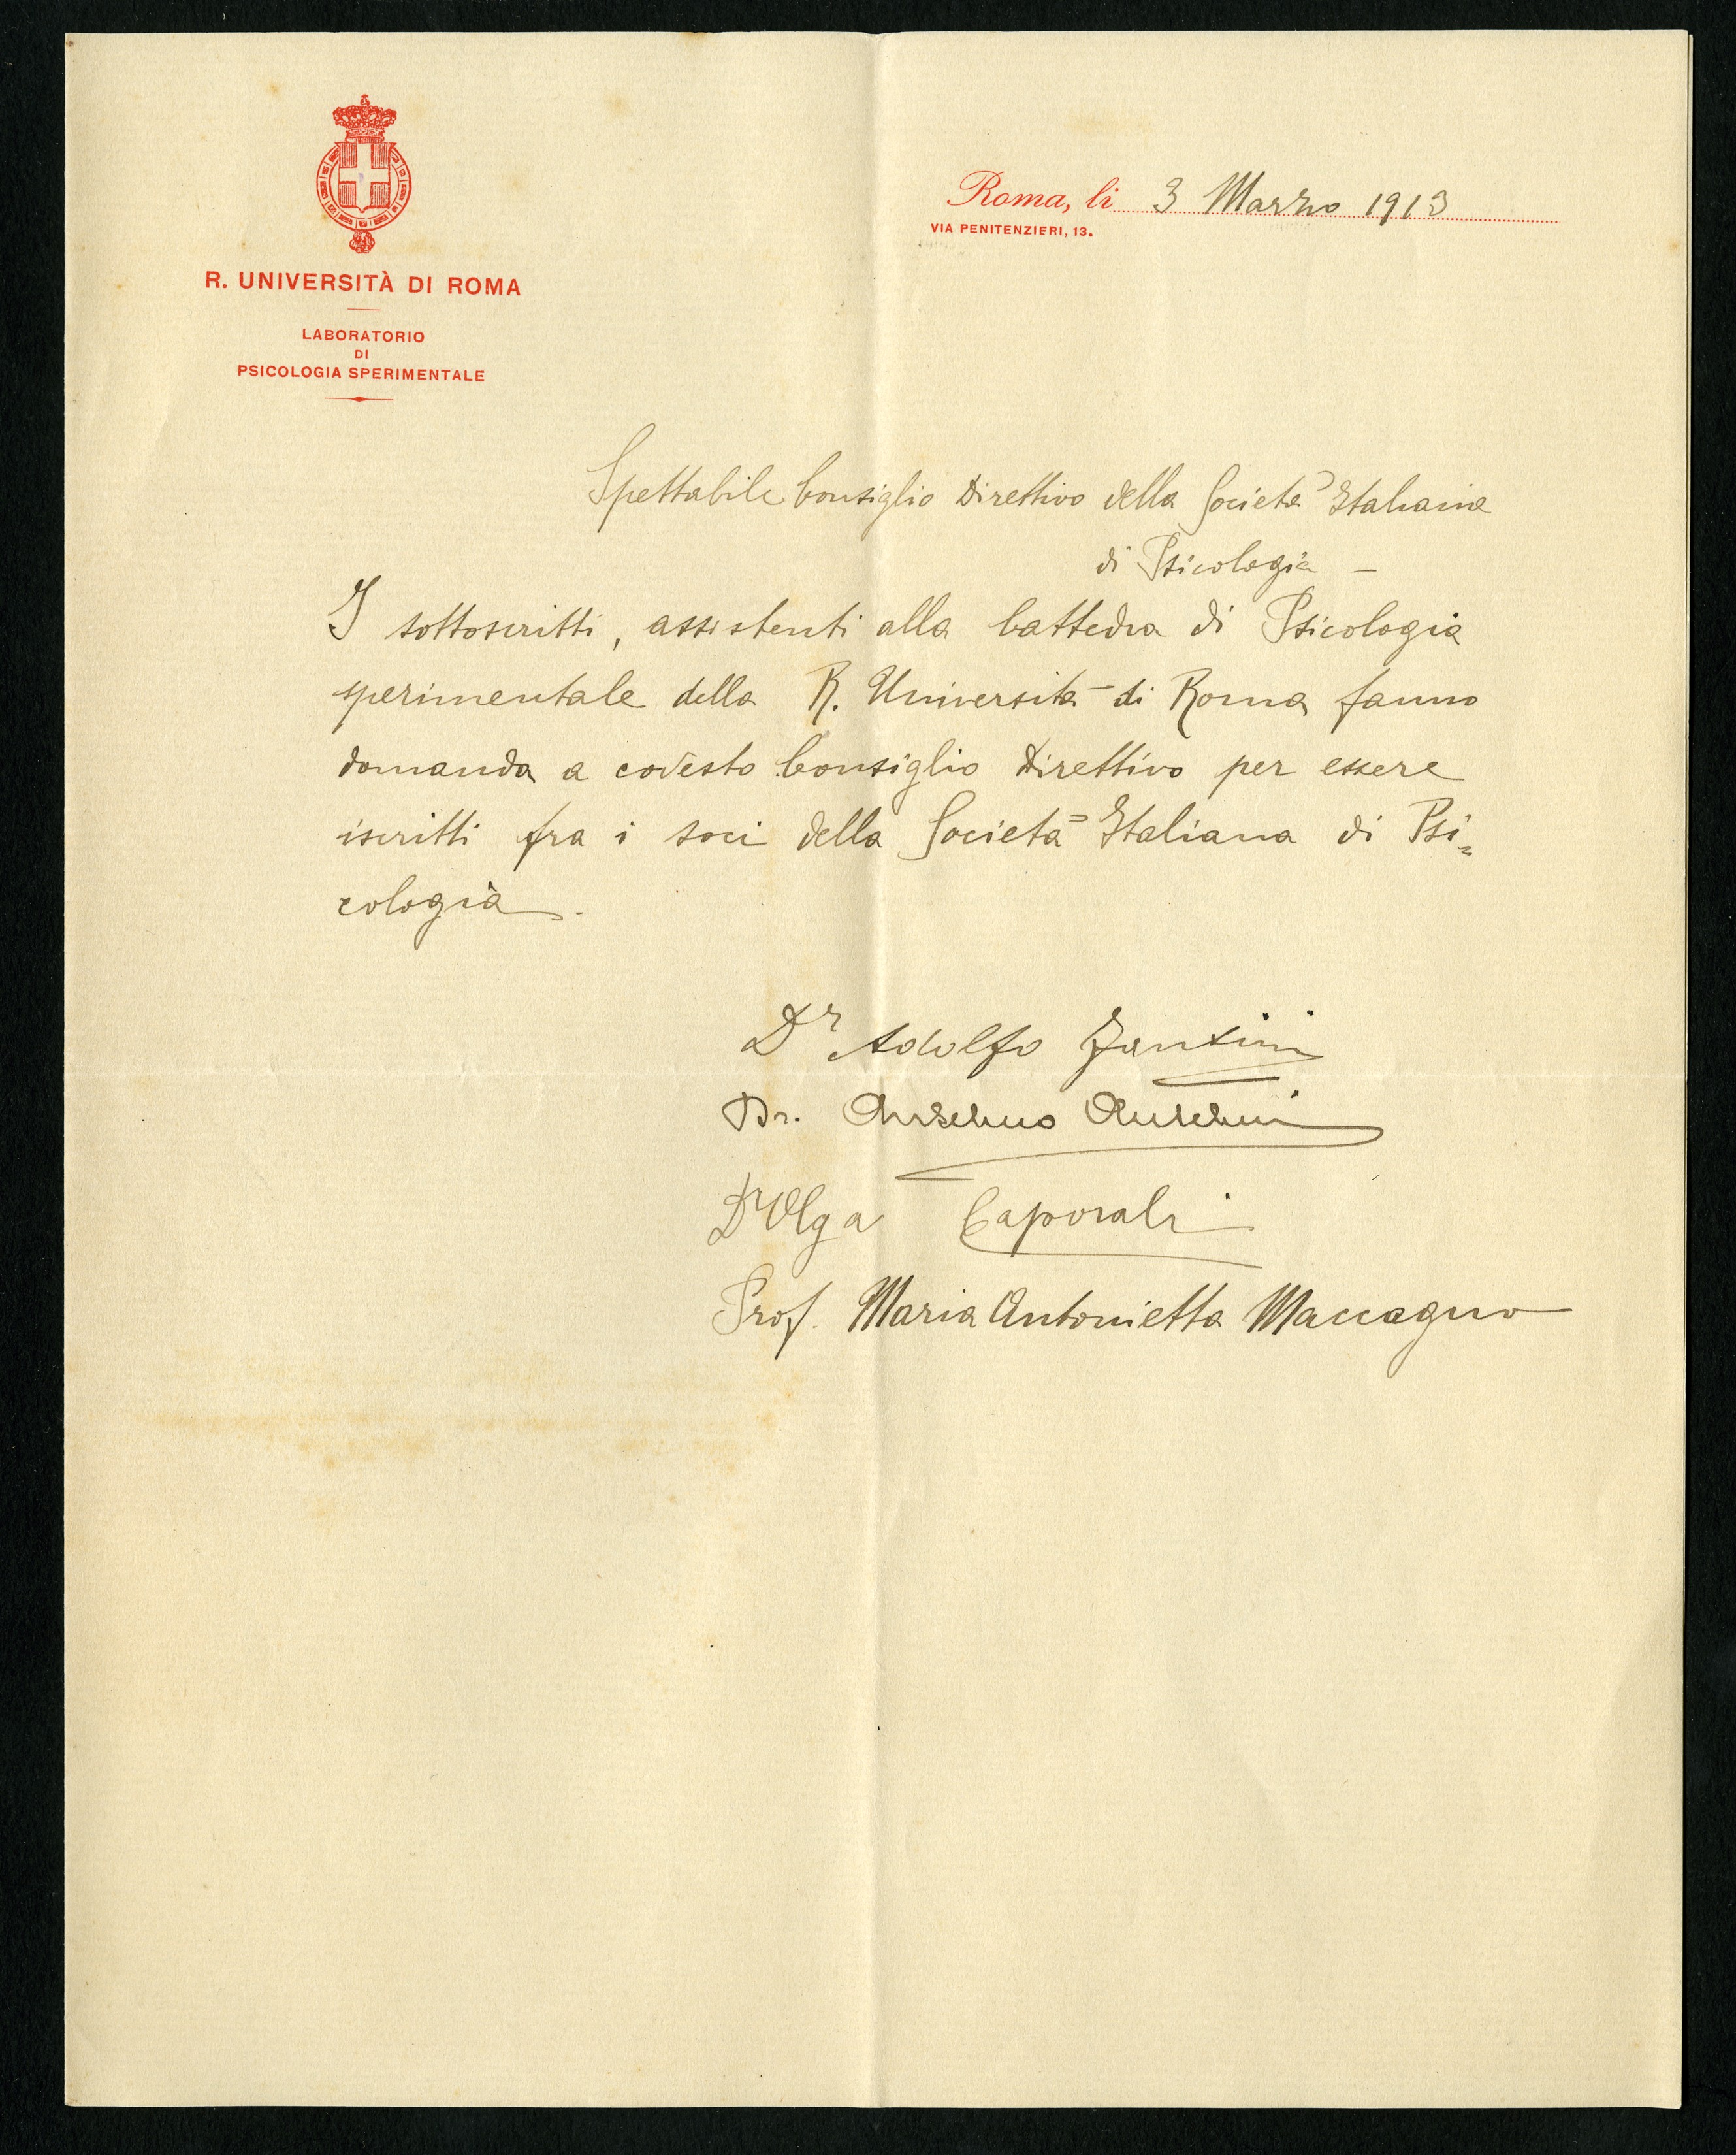 R. UNIVERSITÀ DI ROMA
LABORATORIO
DI
PSICOLOGIA SPERIMENTALE
Roma, li 3 Marzo 1913
VIA PENITENZIERI, 13.
Spettabile Consiglio Direttivo della Società Italiana
di Psicologia -
I sottoscritti, assistenti alla Cattedra di Psicologia
sperimentale della R. Università di Roma fanno
domanda a codesto Consiglio Direttivo per essere
iscritti fra i soci della Società Italiana di Psi=
cologia.
Dr Adolfo
Dr. Anselmo Anselmi
Dr Olga Caporali
Prof. Maria Antonietta Maccagno